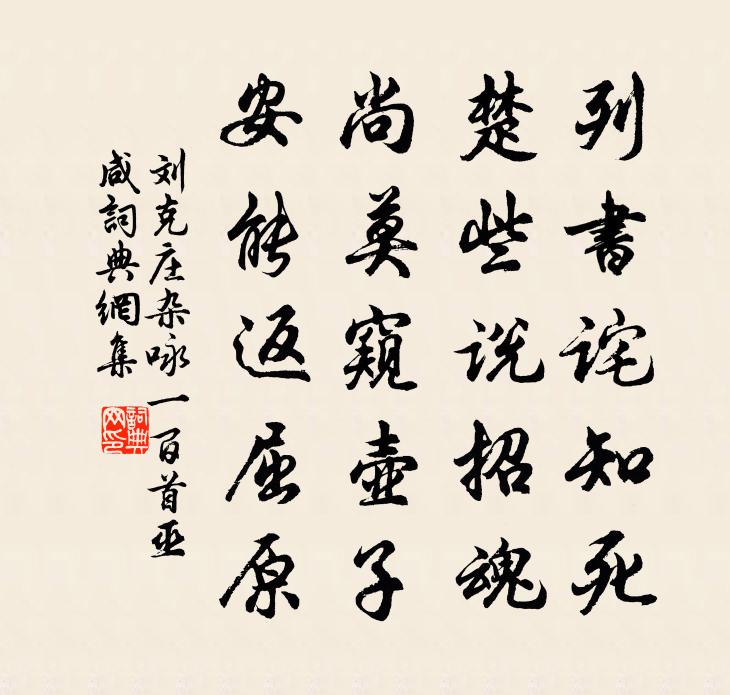 列書詫知死
楚些説招魂
尚莫窺壺子
安能返屈原
刘克庄杂咏一百首巫
咸詞典網集
詞典
网印